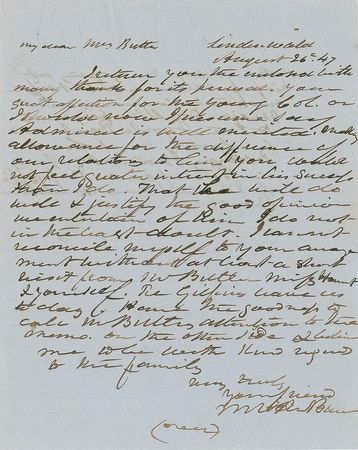 my dear Mrs Butler Lindenwald
August 26th 47
I return you the enclosed with
many thanks for its perusal. Your
great affection for the young Col. or
I should now I presume say
Admiral is well merited. Making
allowance for the difference of
our relations to him you could
not feel greater interest in his success
than I do. That he will do
well & justify the good opinion
we entertain of him I do not
in the least doubt. I cannot
reconcile myself to your
without at least a short
visit from Mr Butler Miss
& yourself. The leave us
to day. Have the goodness to
call Mr Butlers attention to the
memo. on the other side & believe
me to be with kind regard
to the family
very truly
your friend
M Van Buren
(over)